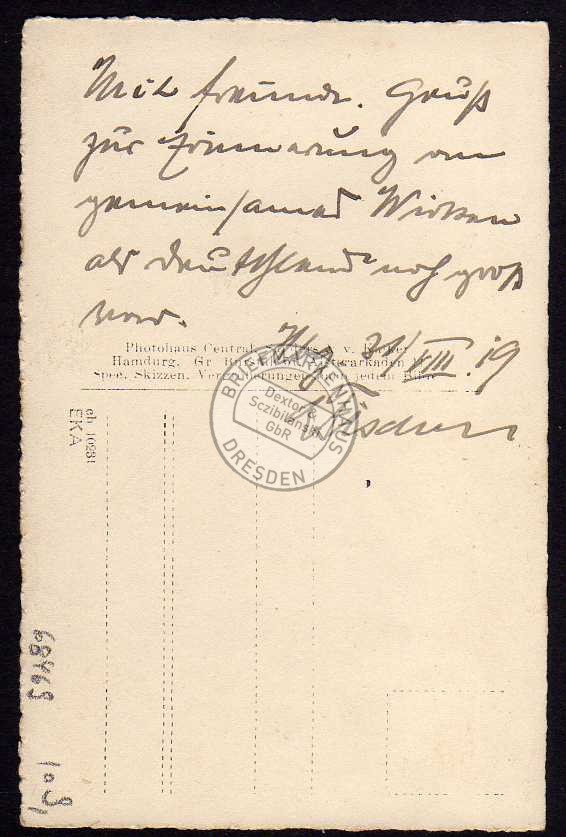 Mit freundl. Gruß
zur Erinnerung an
gemeinsames Wirken
als Deutschland noch groß
war.
31/VIII.19
Photohaus Central v.
Hamburg. Gr.
Spec. Skizzen. jedem
BRIEFMARKENHAUS
Dextor &
Sczibilanski
GbR
DRESDEN
eh 10231
EKA
68463